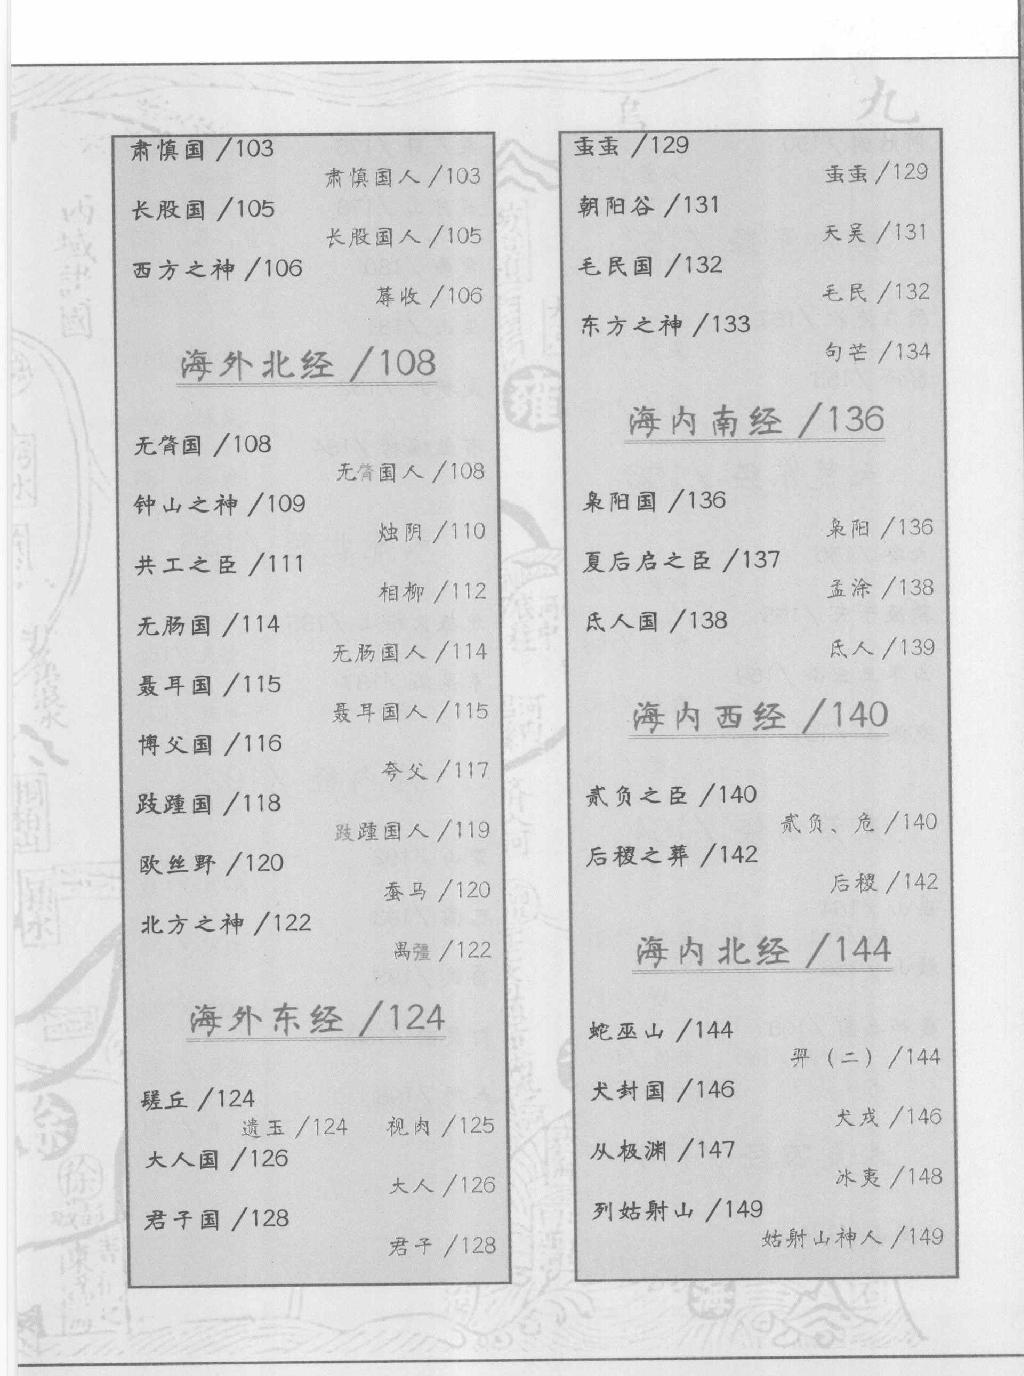 肃慎国 /103
肃慎国人 /103
长股国 /105
长股国人 /105
西方之神 /106
蓐收 /106
海外北经 /108
无䏿国 /108
无䏿国人 /108
钟山之神 /109
烛阴 /110
共工之臣 /111
相柳 /112
无肠国 /114
无肠国人 /114
聂耳国 /115
聂耳国人 /115
博父国 /116
夸父 /117
跂踵国 /118
跂踵国人 /119
欧丝野 /120
蚕马 /120
北方之神 /122
禺彊 /122
海外东经 /124
𨲠丘 /124
遗玉 /124 视肉 /125
大人国 /126
大人 /126
君子国 /128
君子 /128
䖝䖝 /129
䖝䖝 /129
朝阳谷 /131
天吴 /131
毛民国 /132
毛民 /132
东方之神 /133
句芒 /134
海内南经 /136
枭阳国 /136
枭阳 /136
夏后启之臣 /137
孟涂 /138
氐人国 /138
氐人 /139
海内西经 /140
贰负之臣 /140
贰负、危 /140
后稷之葬 /142
后稷 /142
海内北经 /144
蛇巫山 /144
羿（二） /144
犬封国 /146
犬戎 /146
从极渊 /147
冰夷 /148
列姑射山 /149
姑射山神人 /149